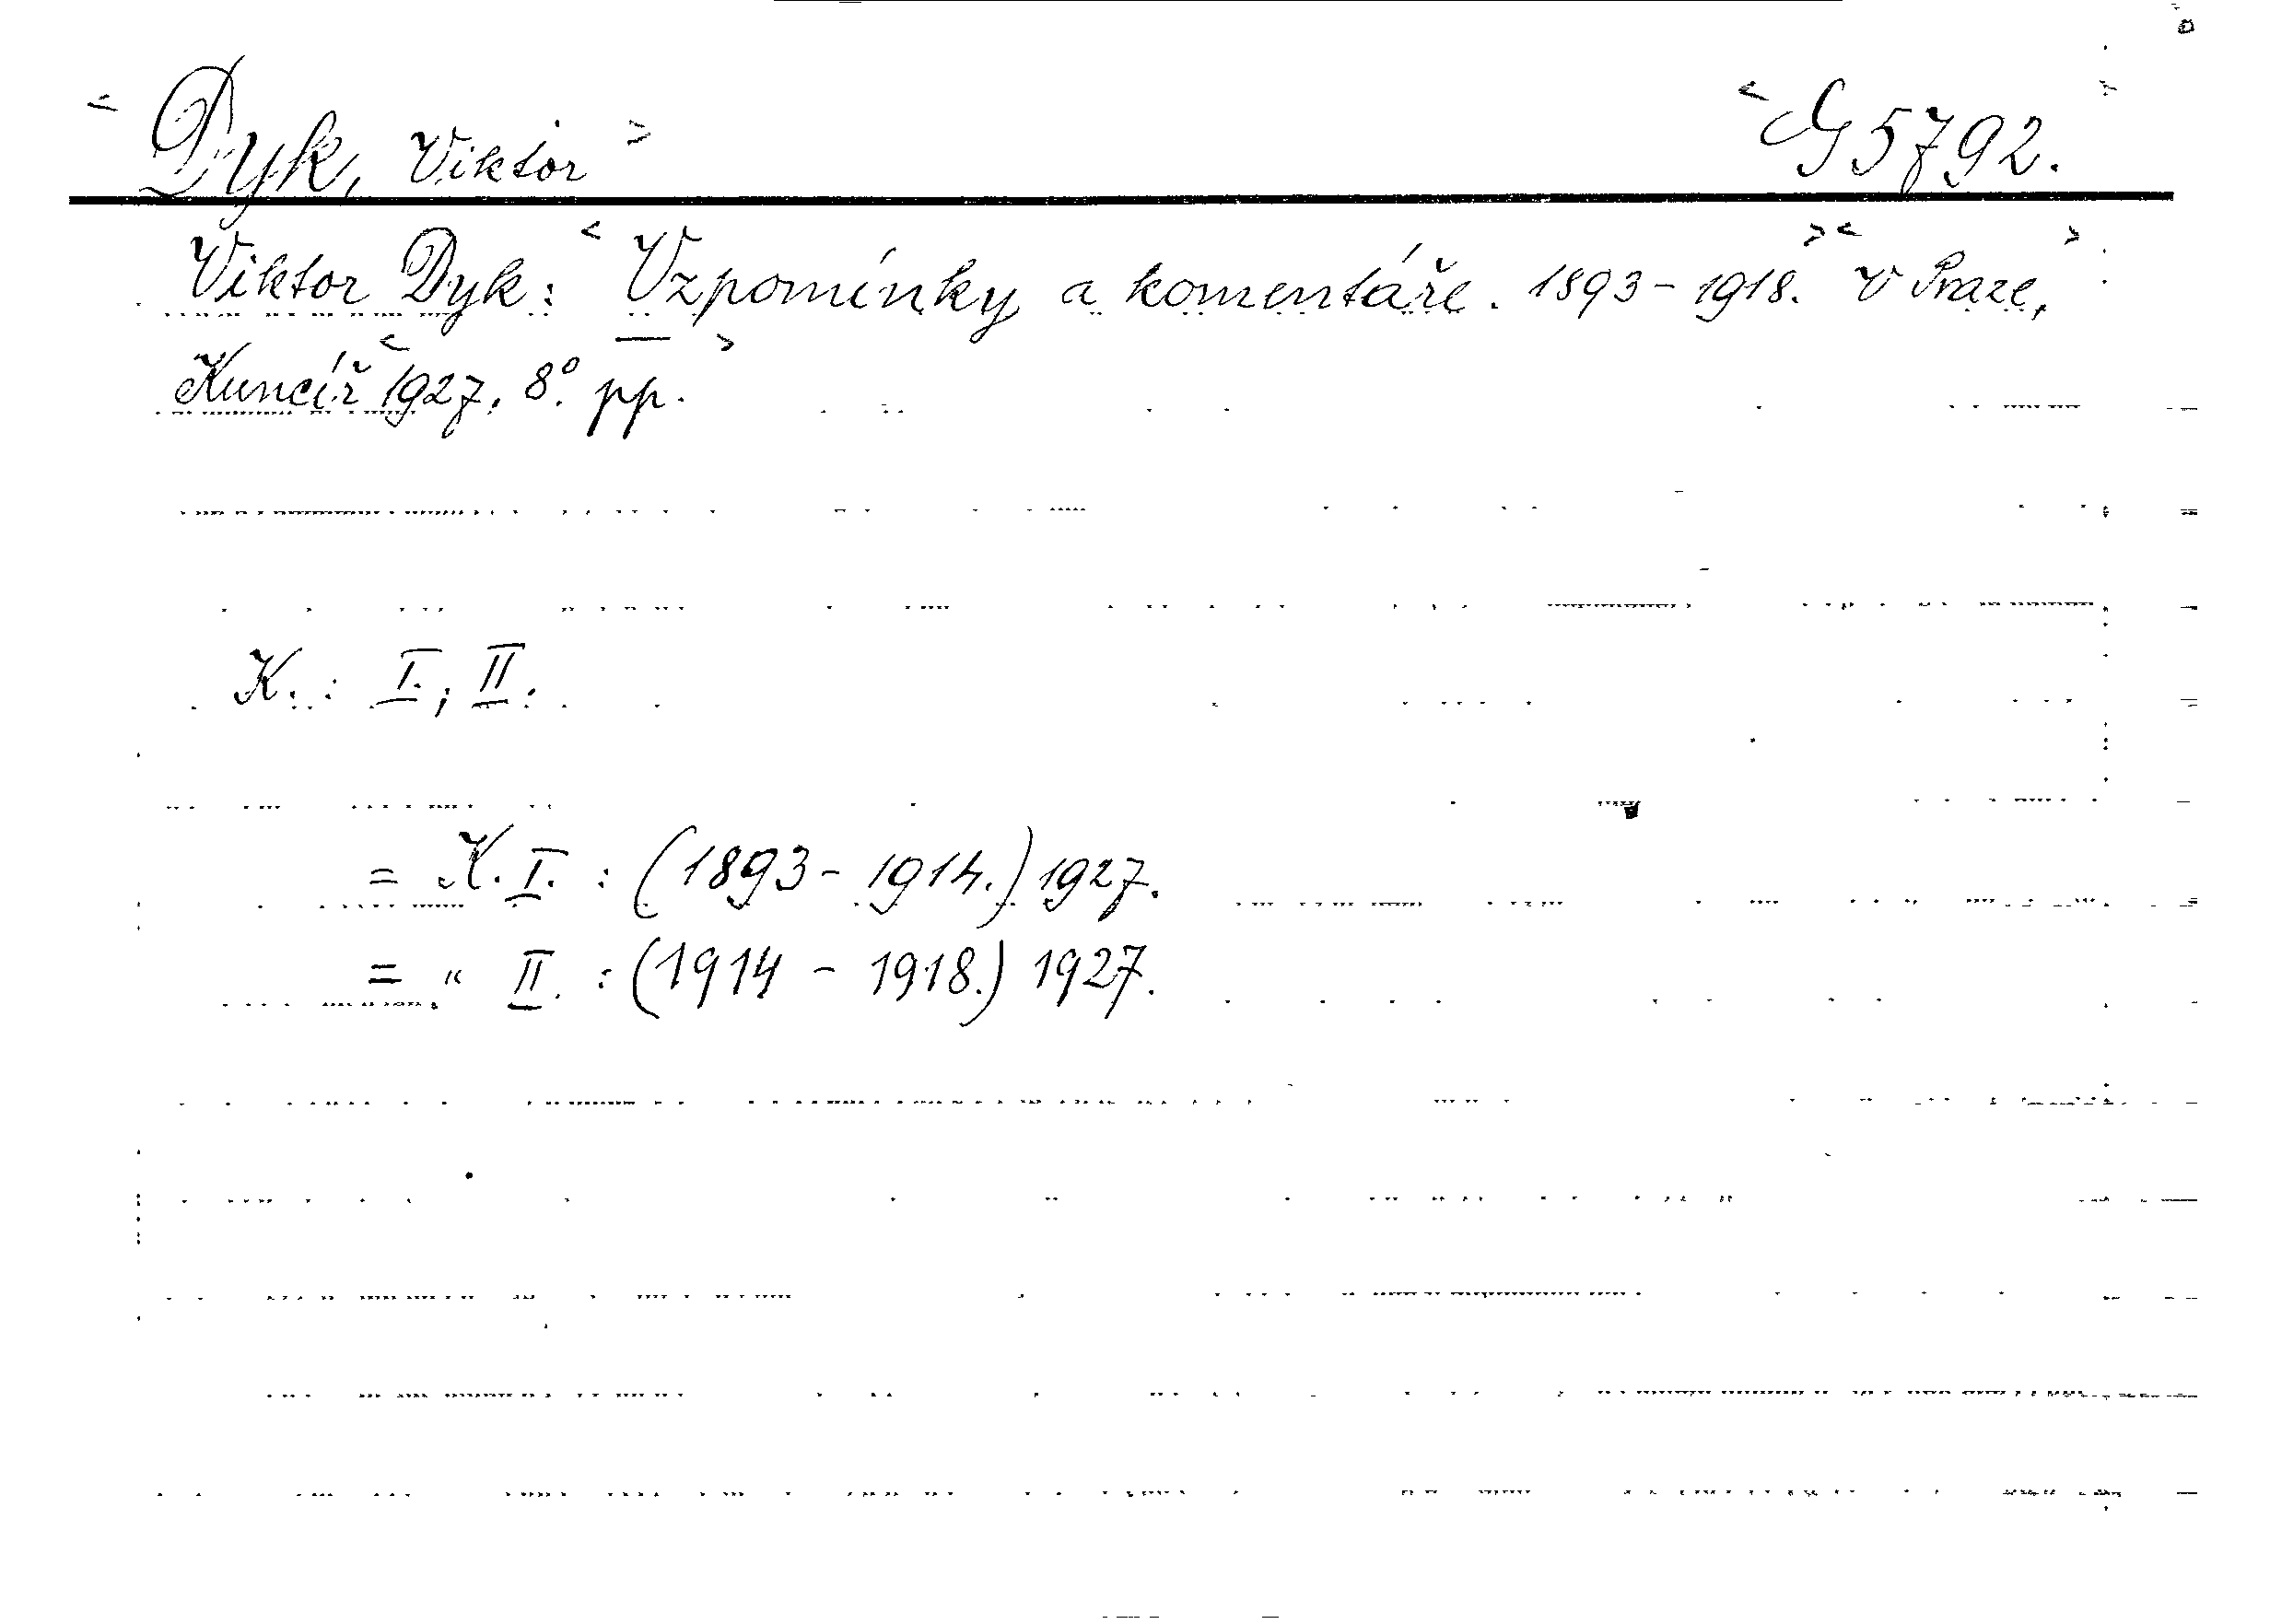 < Dyk, Viktor > < G 5792. >
Viktor Dyk: < Vzpomínky a komentáře. 1893-1918. > < V Praze, >
Kuncíř < 1927. 8°. pp. >
K.: I.; II.
= K. I. : (1893-1914.) 1927.
= " II. : (1914-1918.) 1927.